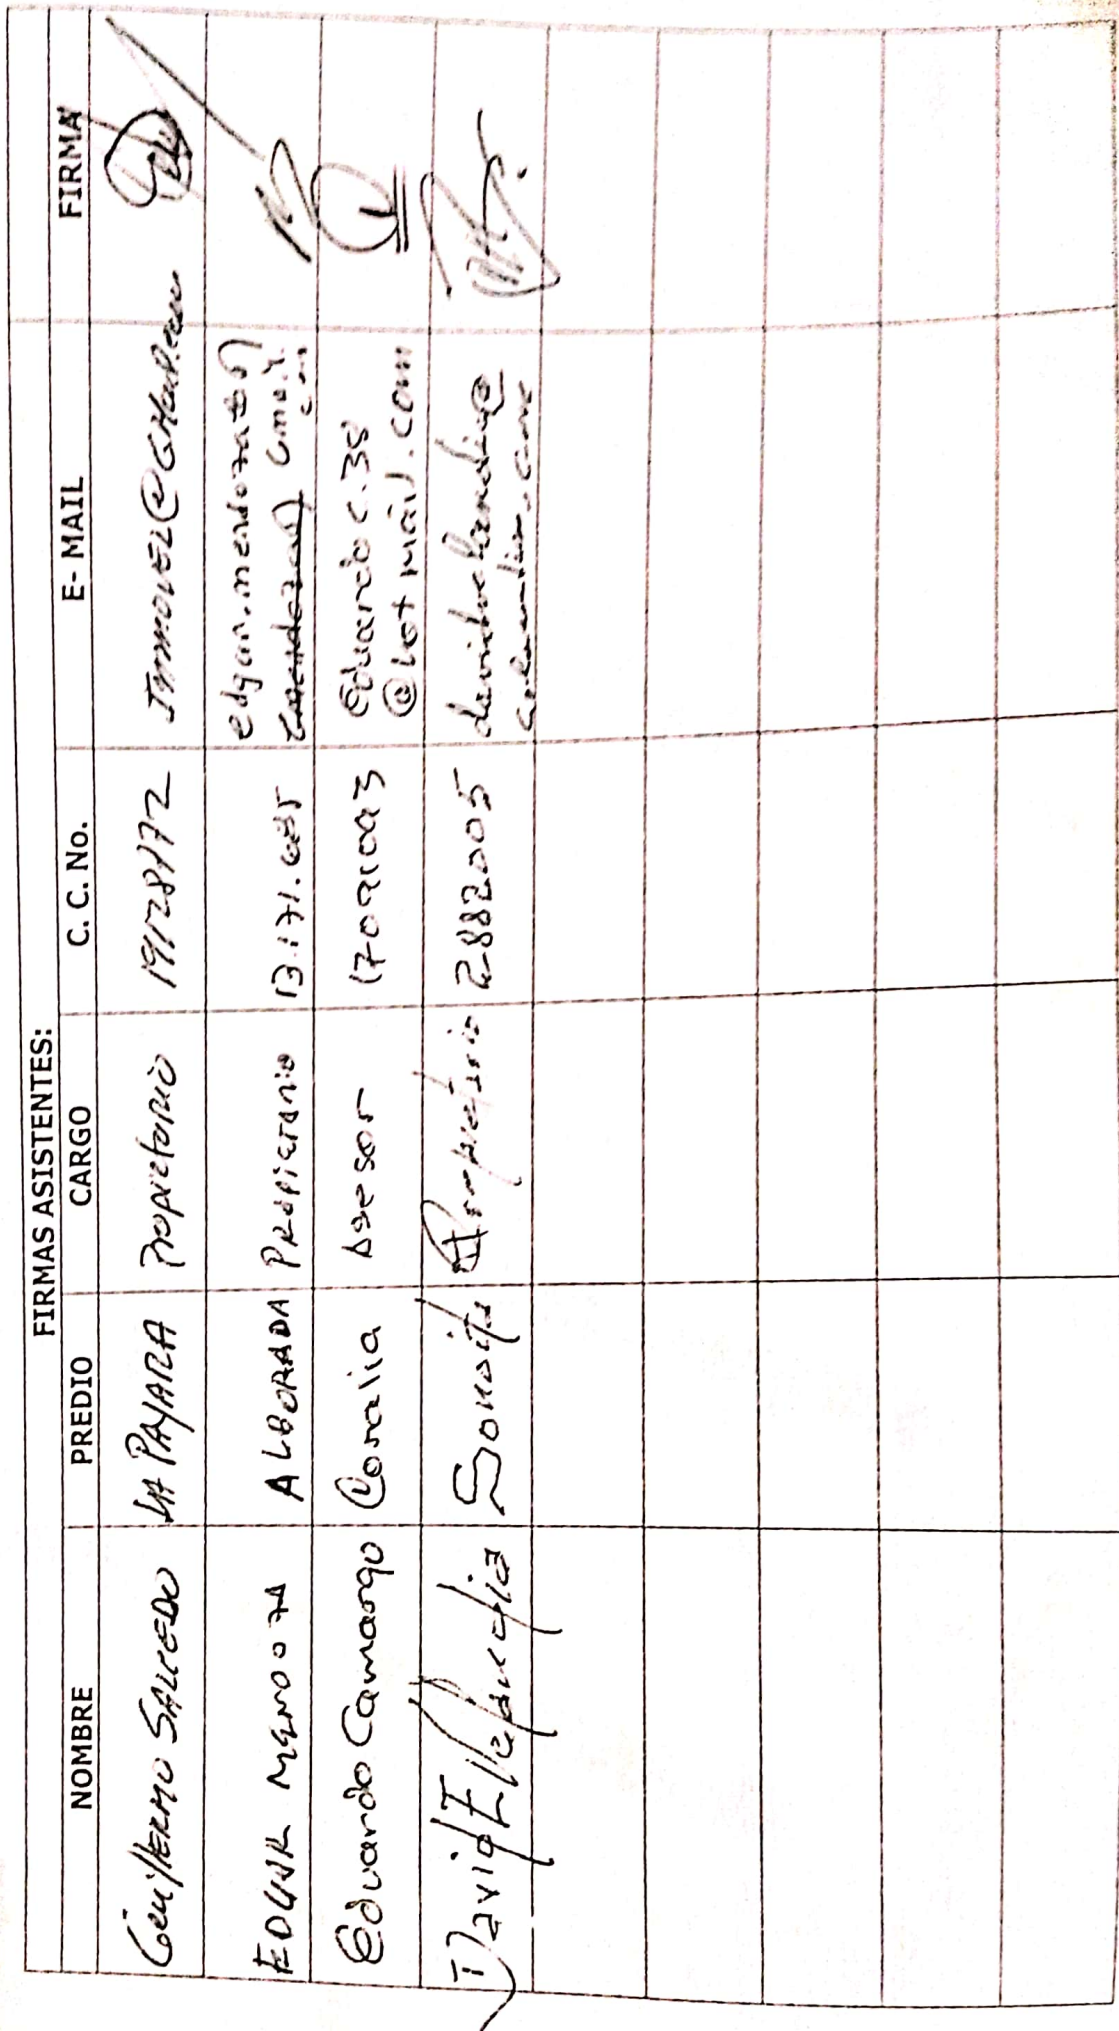 FIRMAS ASISTENTES:
NOMBRE PREDIO CARGO C. C. No. E- MAIL FIRMA
Guillermo SALCEDO LA PAYARA Propietario 19128172
EDGAR MENDOZA ALBORADA PROPIETARIO 13.171.685 edgar.mendoza
Gmail.
com
Eduardo Camargo Coralia Asesor 17091093 Eduardo c.38
@hotmail.com
David E Sonsita Propietario 2882005